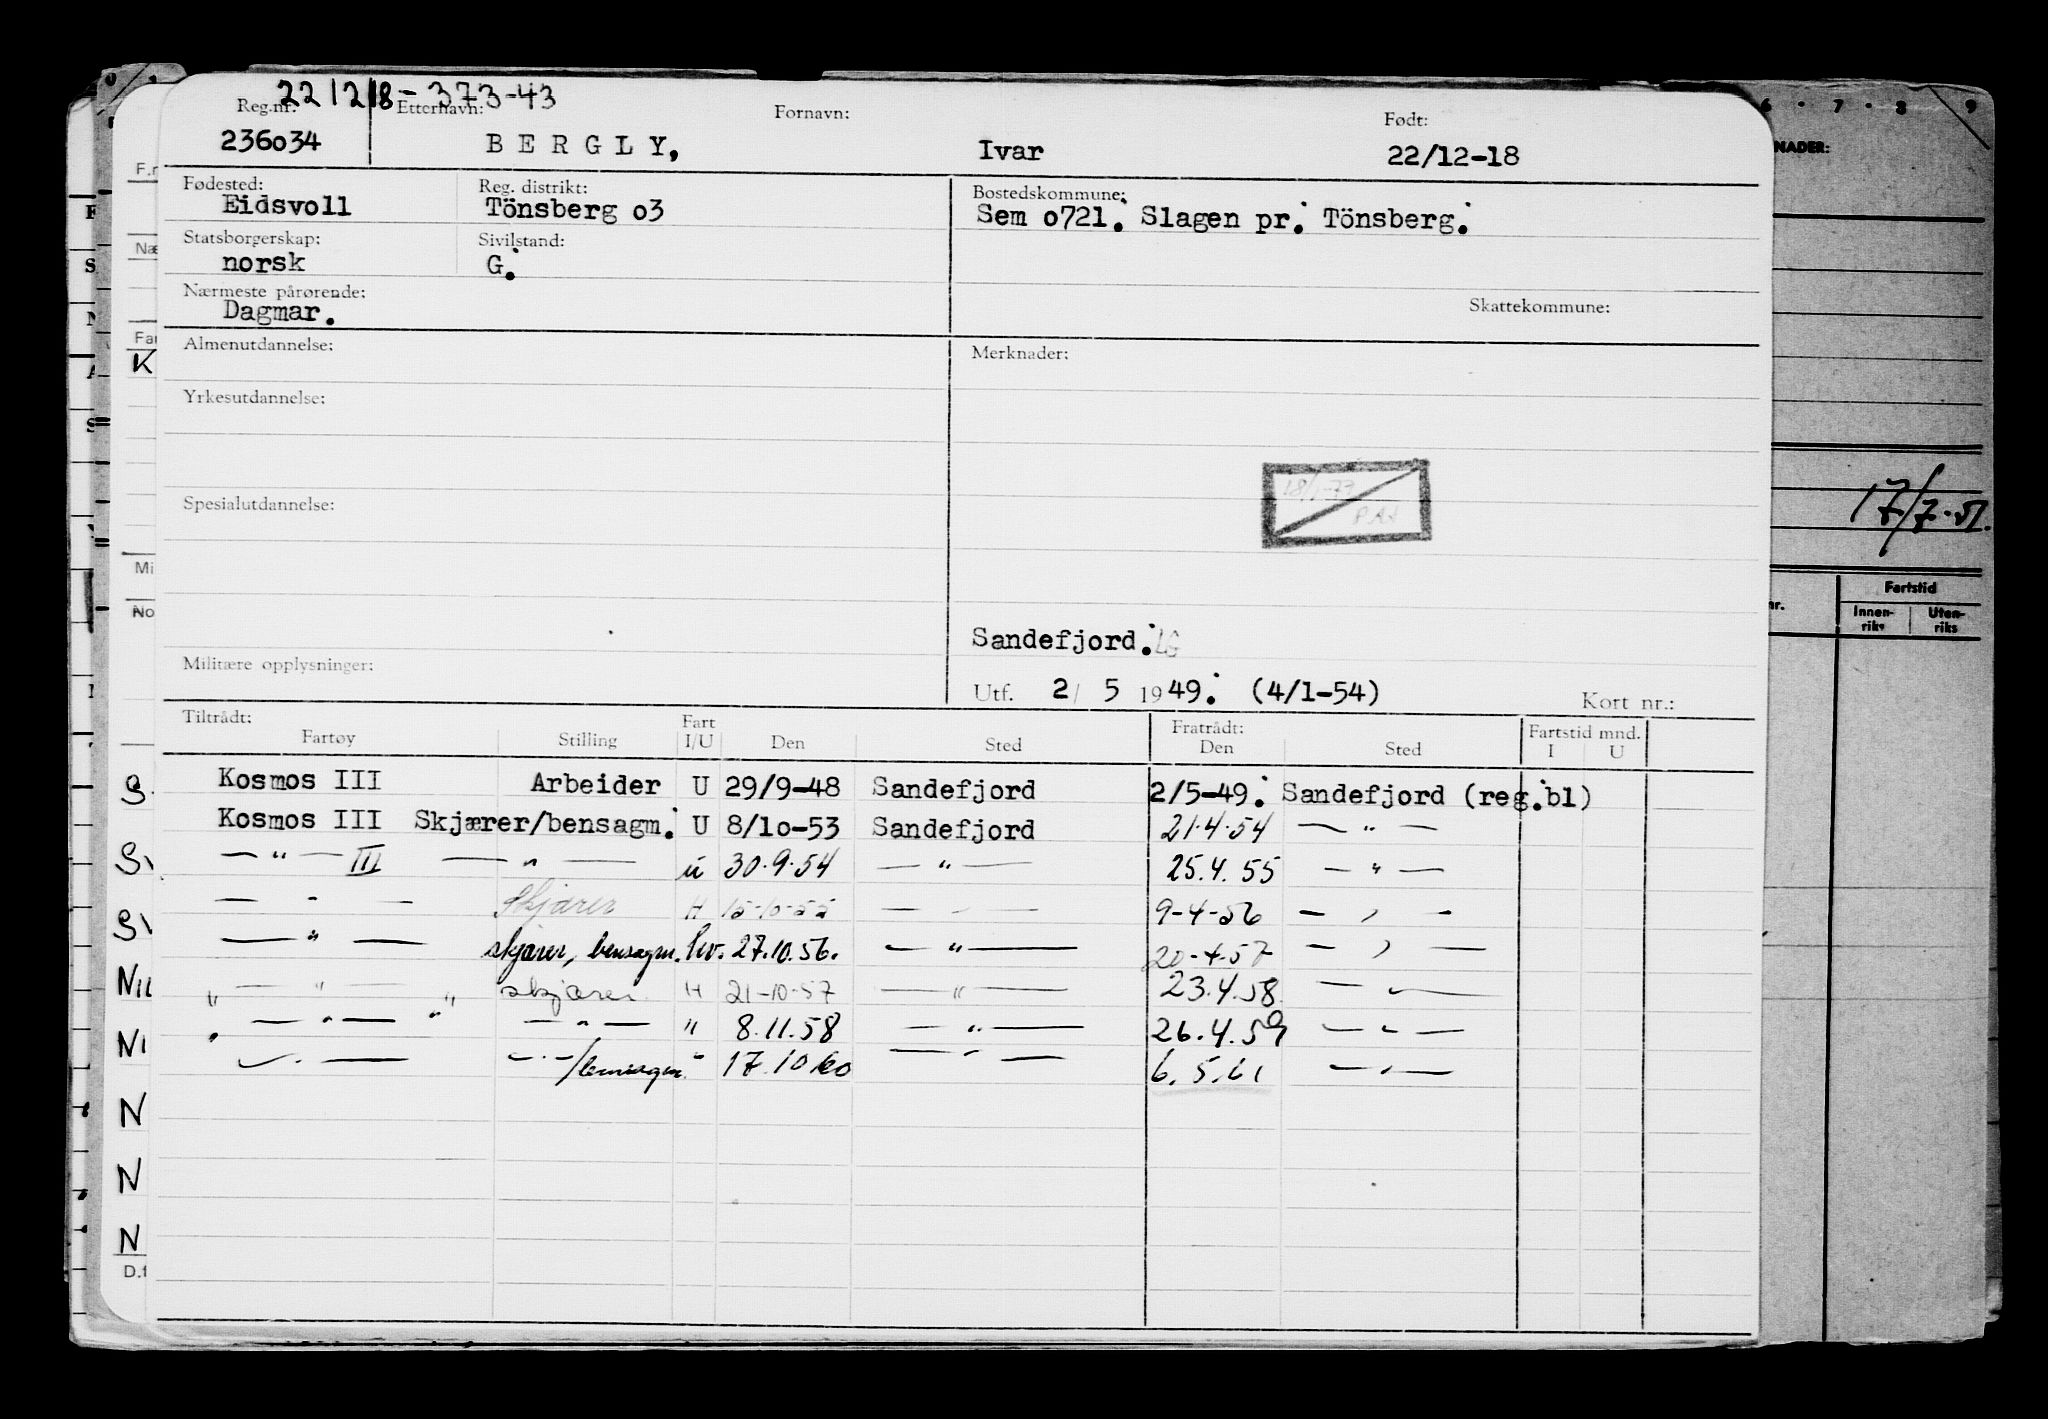 221218-373-43
Reg.nr. Etternavn: Fornavn: Født:
236034 BERGLY, Ivar 22/12-18
Fødested: Reg. distrikt: Bostedskommune:
Eidsvoll Tönsberg o3 Sem o721. Slagen pr. Tönsberg.
Statsborgerskap: Sivilstand:
norsk G.
Nærmeste pårørende: Skattekommune:
Dagmar.
Almenutdannelse: Merknader:
Yrkesutdannelse:
18/1-73
Spesialutdannelse:
17/7-51.
Sandefjord. LG
Militære opplysninger:
Utf. 2/ 5 1949. (4/1-54) Kort nr.:
Tiltrådt: Fart Fratrådt: Fartstid mnd.
Fartøy Stilling I/U Den Sted Den Sted I U
Kosmos III Arbeider U 29/9-48 Sandefjord 2/5-49. Sandefjord (reg.bl)
Kosmos III Skjærer/bensagm. U 8/1o-53 Sandefjord 21.4.54 — " —
— " — III — " — u 30.9.54 — " — 25.4.55 — " —
— " — Skjærer H 15-10-55 — " — 9-4-56 — " —
— " — skjærer, bensagm. Hv. 27.10.56. — " — 20-4-57 — " —
" — " — " skjærer H 21-10-57 — " — 23.4.58. — " —
" — " — " — " — " 8.11.58 — " — 26.4.59 — " —
— " — — " — /bensagm. " 17.10.60 — " — 6.5.61 — " —
NADER:
Fartstid
Innen-riks Uten-riks